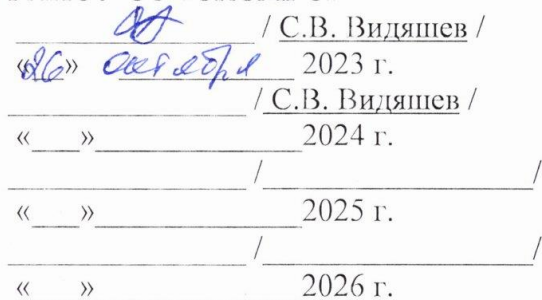 / С.В. Видяшев /
«26» октября 2023 г.
/ С.В. Видяшев /
«___»________________2024 г.
____________________/______________________/
«___»________________2025 г.
____________________/______________________/
«___»________________2026 г.